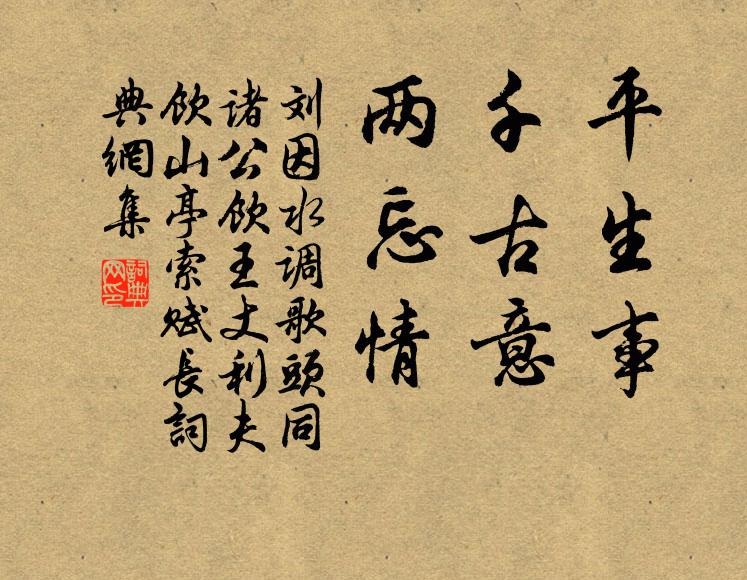 平生事
千古意
两忘情
刘因水调歌頭同
诸公饮王丈利夫
饮山亭索赋長詞
典網集
詞典
网印